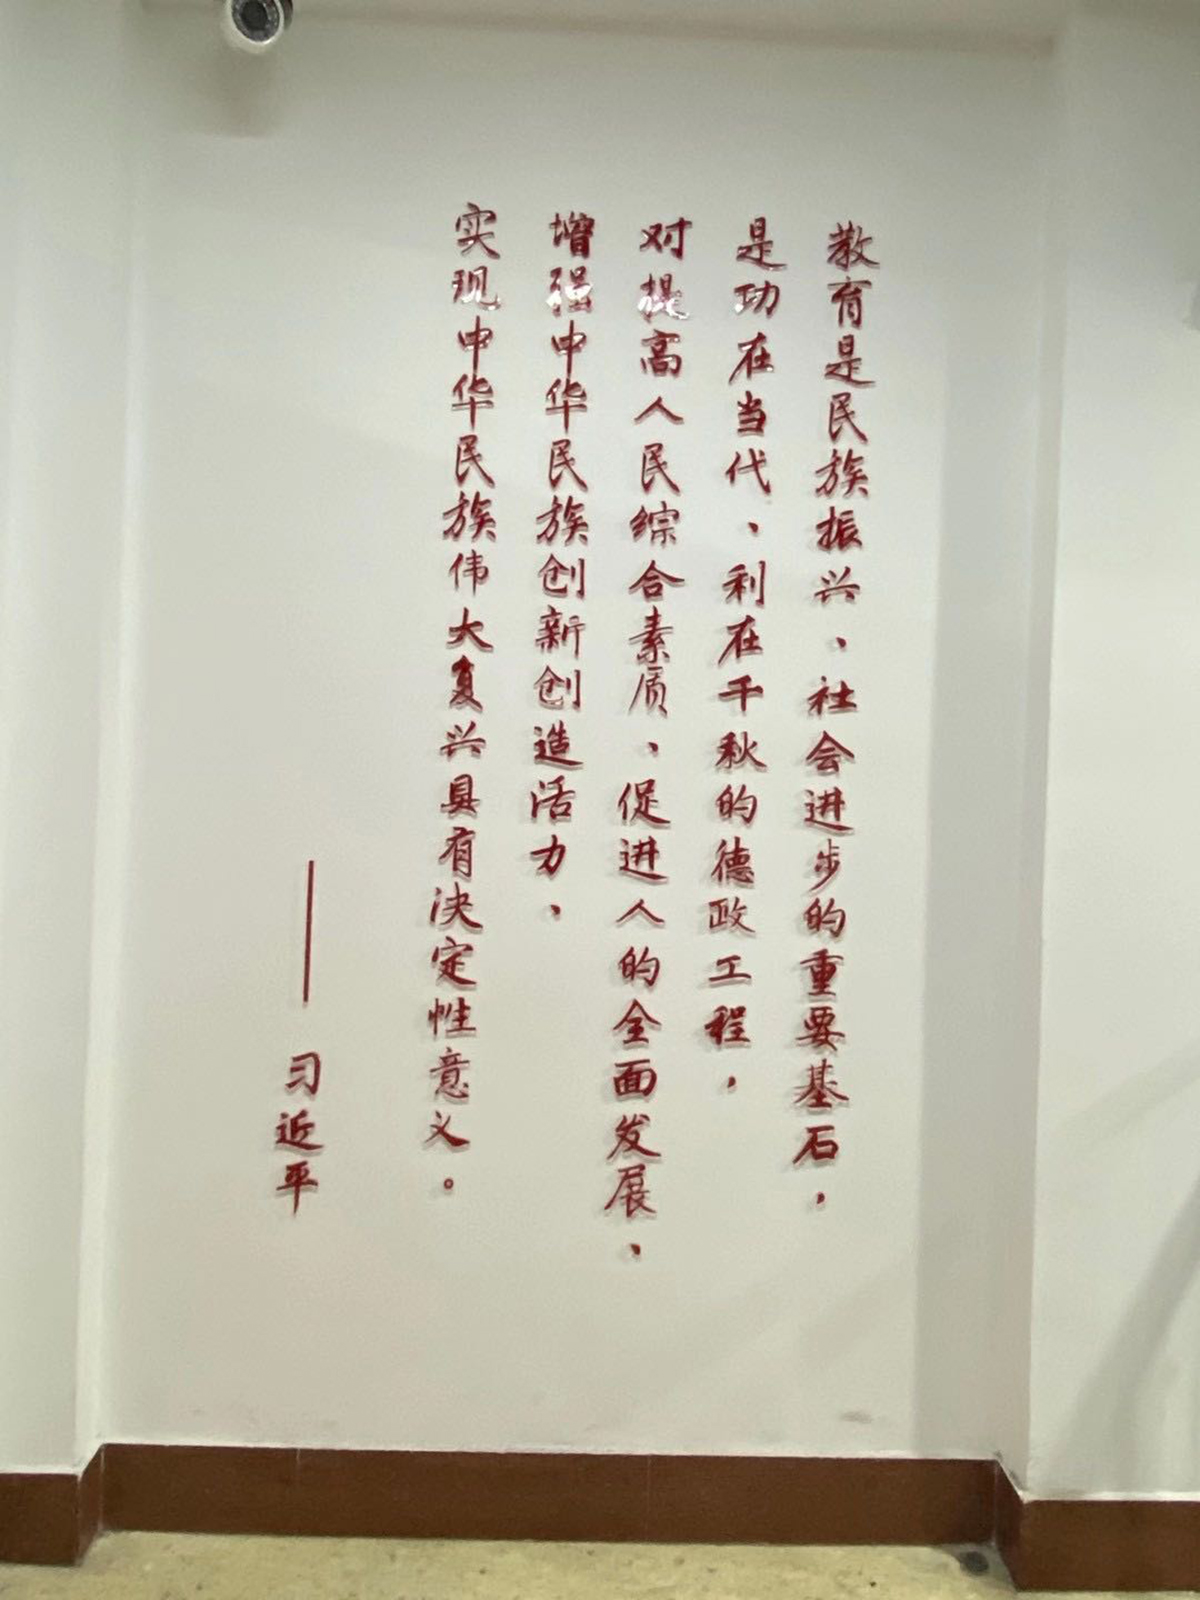 教育是民族振兴、社会进步的重要基石，
是功在当代、利在千秋的德政工程，
对提高人民综合素质、促进人的全面发展、
增强中华民族创新创造活力、
实现中华民族伟大复兴具有决定性意义。
——习近平